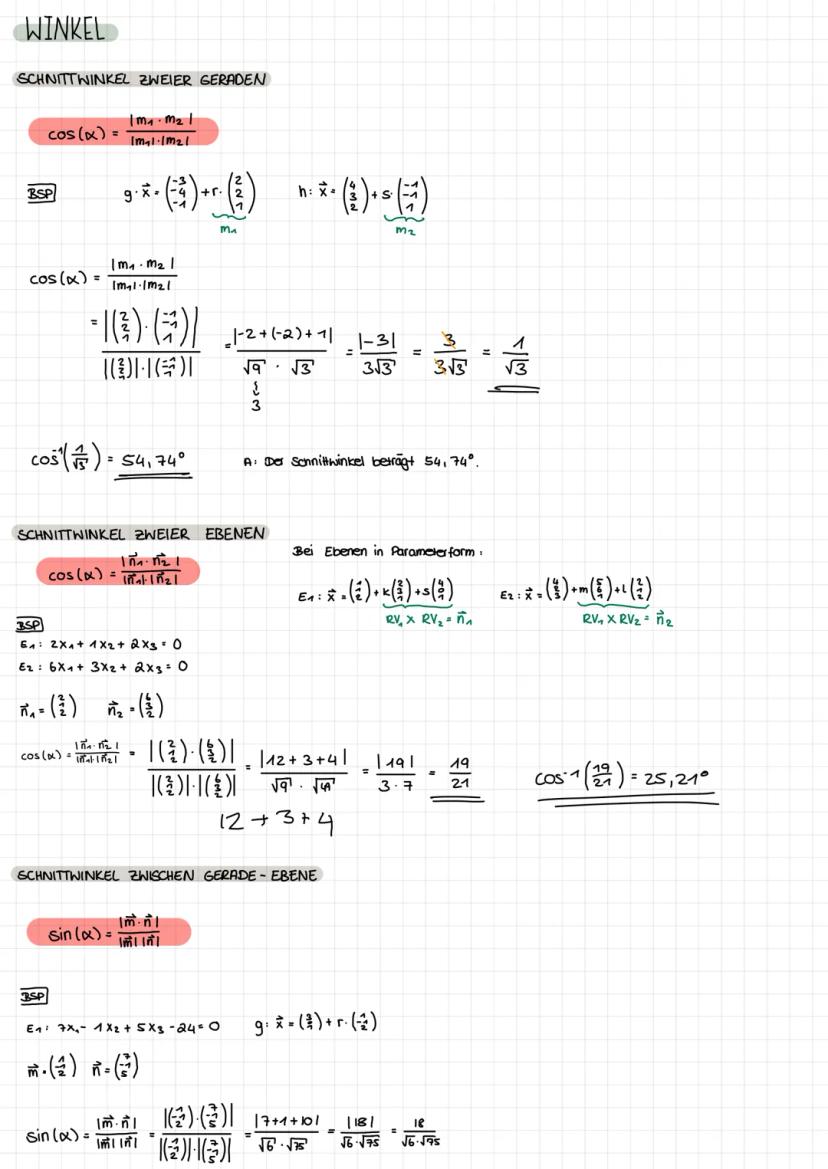 WINKEL
SCHNITTWINKEL ZWEIER GERADEN
cos(α) = |m₁ · m₂| / |m₁|·|m₂|
BSP g: x⃗ = (-3 -4 -1) + r · (2 2 1) h: x⃗ = (4 3 2) + s · (-1 -1 1)
m₁ m₂
cos(α) = |m₁ · m₂| / |m₁|·|m₂|
= |(2 2 1) · (-1 -1 1)| / |(2 2 1)|·|(-1 -1 1)| = |-2+(-2)+1| / √9 · √3 = |-3| / 3√3 = 3 / 3√3 = 1 / √3
3
cos⁻¹(1/√3) = 54,74° A: Der Schnittwinkel beträgt 54,74°.
SCHNITTWINKEL ZWEIER EBENEN
Bei Ebenen in Parameterform:
cos(α) = |n⃗₁ · n⃗₂| / |n⃗₁|·|n⃗₂|
E₁: x⃗ = (1 1 2) + k(2 3 1) + s(4 0 1) E₂: x⃗ = + m + l(2 1 2)
RV₁ × RV₂ = n⃗₁ RV₁ × RV₂ = n⃗₂
BSP
E₁: 2x₁ + 1x₂ + 2x₃ = 0
E₂: 6x₁ + 3x₂ + 2x₃ = 0
n⃗₁ = (2 1 2) n⃗₂ = (6 3 2)
cos(α) = |n⃗₁ · n⃗₂| / |n⃗₁|·|n⃗₂| = |(2 1 2) · (6 3 2)| / |(2 1 2)|·|(6 3 2)| = |12+3+4| / √9 · √49 = |19| / 3·7 = 19 / 21 cos⁻¹(19/21) = 25,21°
12 + 3 + 4
SCHNITTWINKEL ZWISCHEN GERADE-EBENE
sin(α) = |m⃗ · n⃗| / |m⃗| |n⃗|
BSP
E₁: 7x₁ - 1x₂ + 5x₃ - 24 = 0 g: x⃗ = + r · (1 -1 2)
m⃗ = (1 -1 2) n⃗ = (7 -1 5)
sin(α) = |m⃗ · n⃗| / |m⃗| |n⃗| = |(1 -1 2) · (7 -1 5)| / |(1 -1 2)|·|(7 -1 5)| = |7+1+10| / √6 · √75 = |18| / √6·√75 = 18 / √6·√75